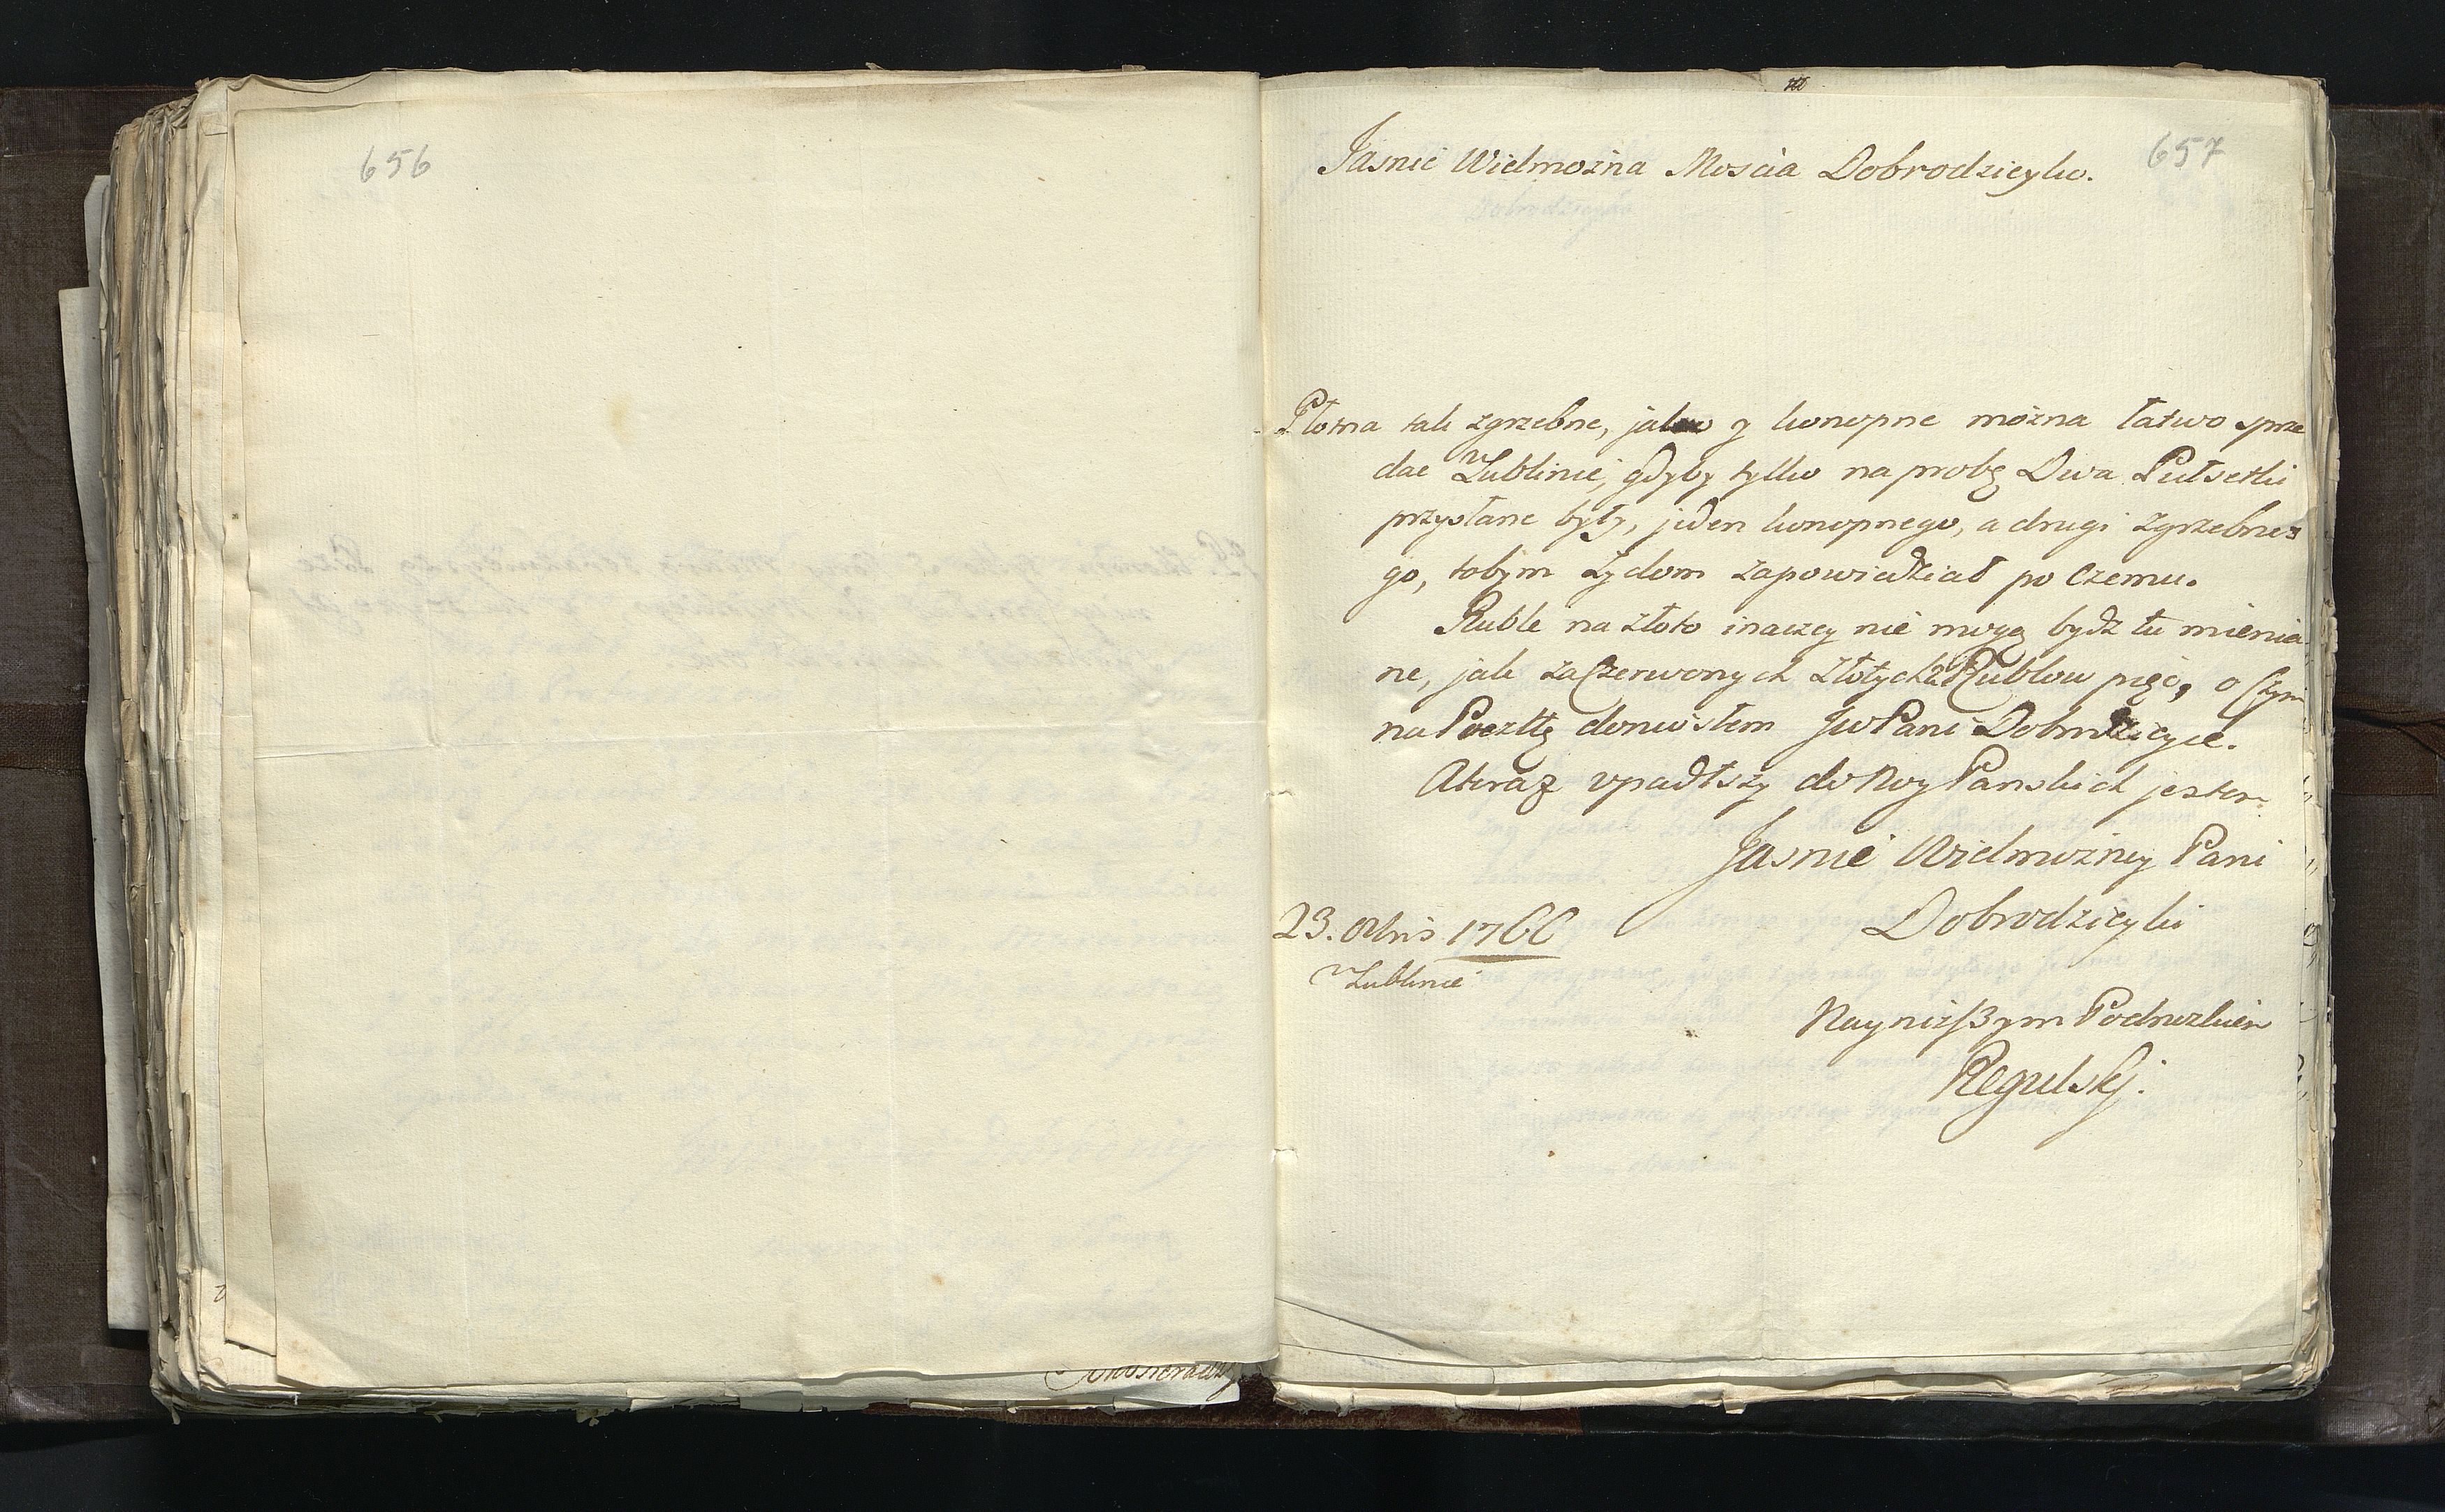 656
657
Jasnie Wielmożna Mościa Dobrodzieyko.
Płotna tak zgrzebne, jako y konopne można łatwo sprze
dac w Lublinie, gdyby tylko na probę Dwa Pułsetki
przysłane były, jeden konopnego, a drugi zgrzebne=
go, tobym Żydom zapowiedział po czemu.
Ruble na złoto inaczey nie mogą bydz tu mienia
ne, jak za Czerwonych Złotych 2 Rublow pięć, o Czym
na Pocztę doniosłem JwPani Dobrodzieyce.
A teraz upadłszy do Nog Panskich jestem
Jasnie Wielmożney Pani
Dobrodzieyki
23. Obris 1766
w Lublinie
Nayniższym Podnozkiem
Regulskj.